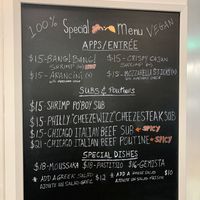 100% Special Menu VEGAN
APPS/ENTRÉE
$15-BANG! BANG! SHRIMP
$15-CRISPY CAJUN
$15-ARANCINI
$15-MOZZARELLA STICKS
SUBS & Poutines
$15-SHRIMP PO'BOY SUB
$15-PHILLY "CHEEZEWIZZ" CHEEZESTEAK SUB
$15-CHICAGO ITALIAN BEEF SUB SPICY
$21-CHICAGO ITALIAN BEEF POUTINE SPICY
SPECIAL DISHES
$18-MOUSSAKA $18-PASTITSIO $16-GEMISTA
+ ADD A GREEK SALAD $12
+ ADD A HOUSE SALAD $10